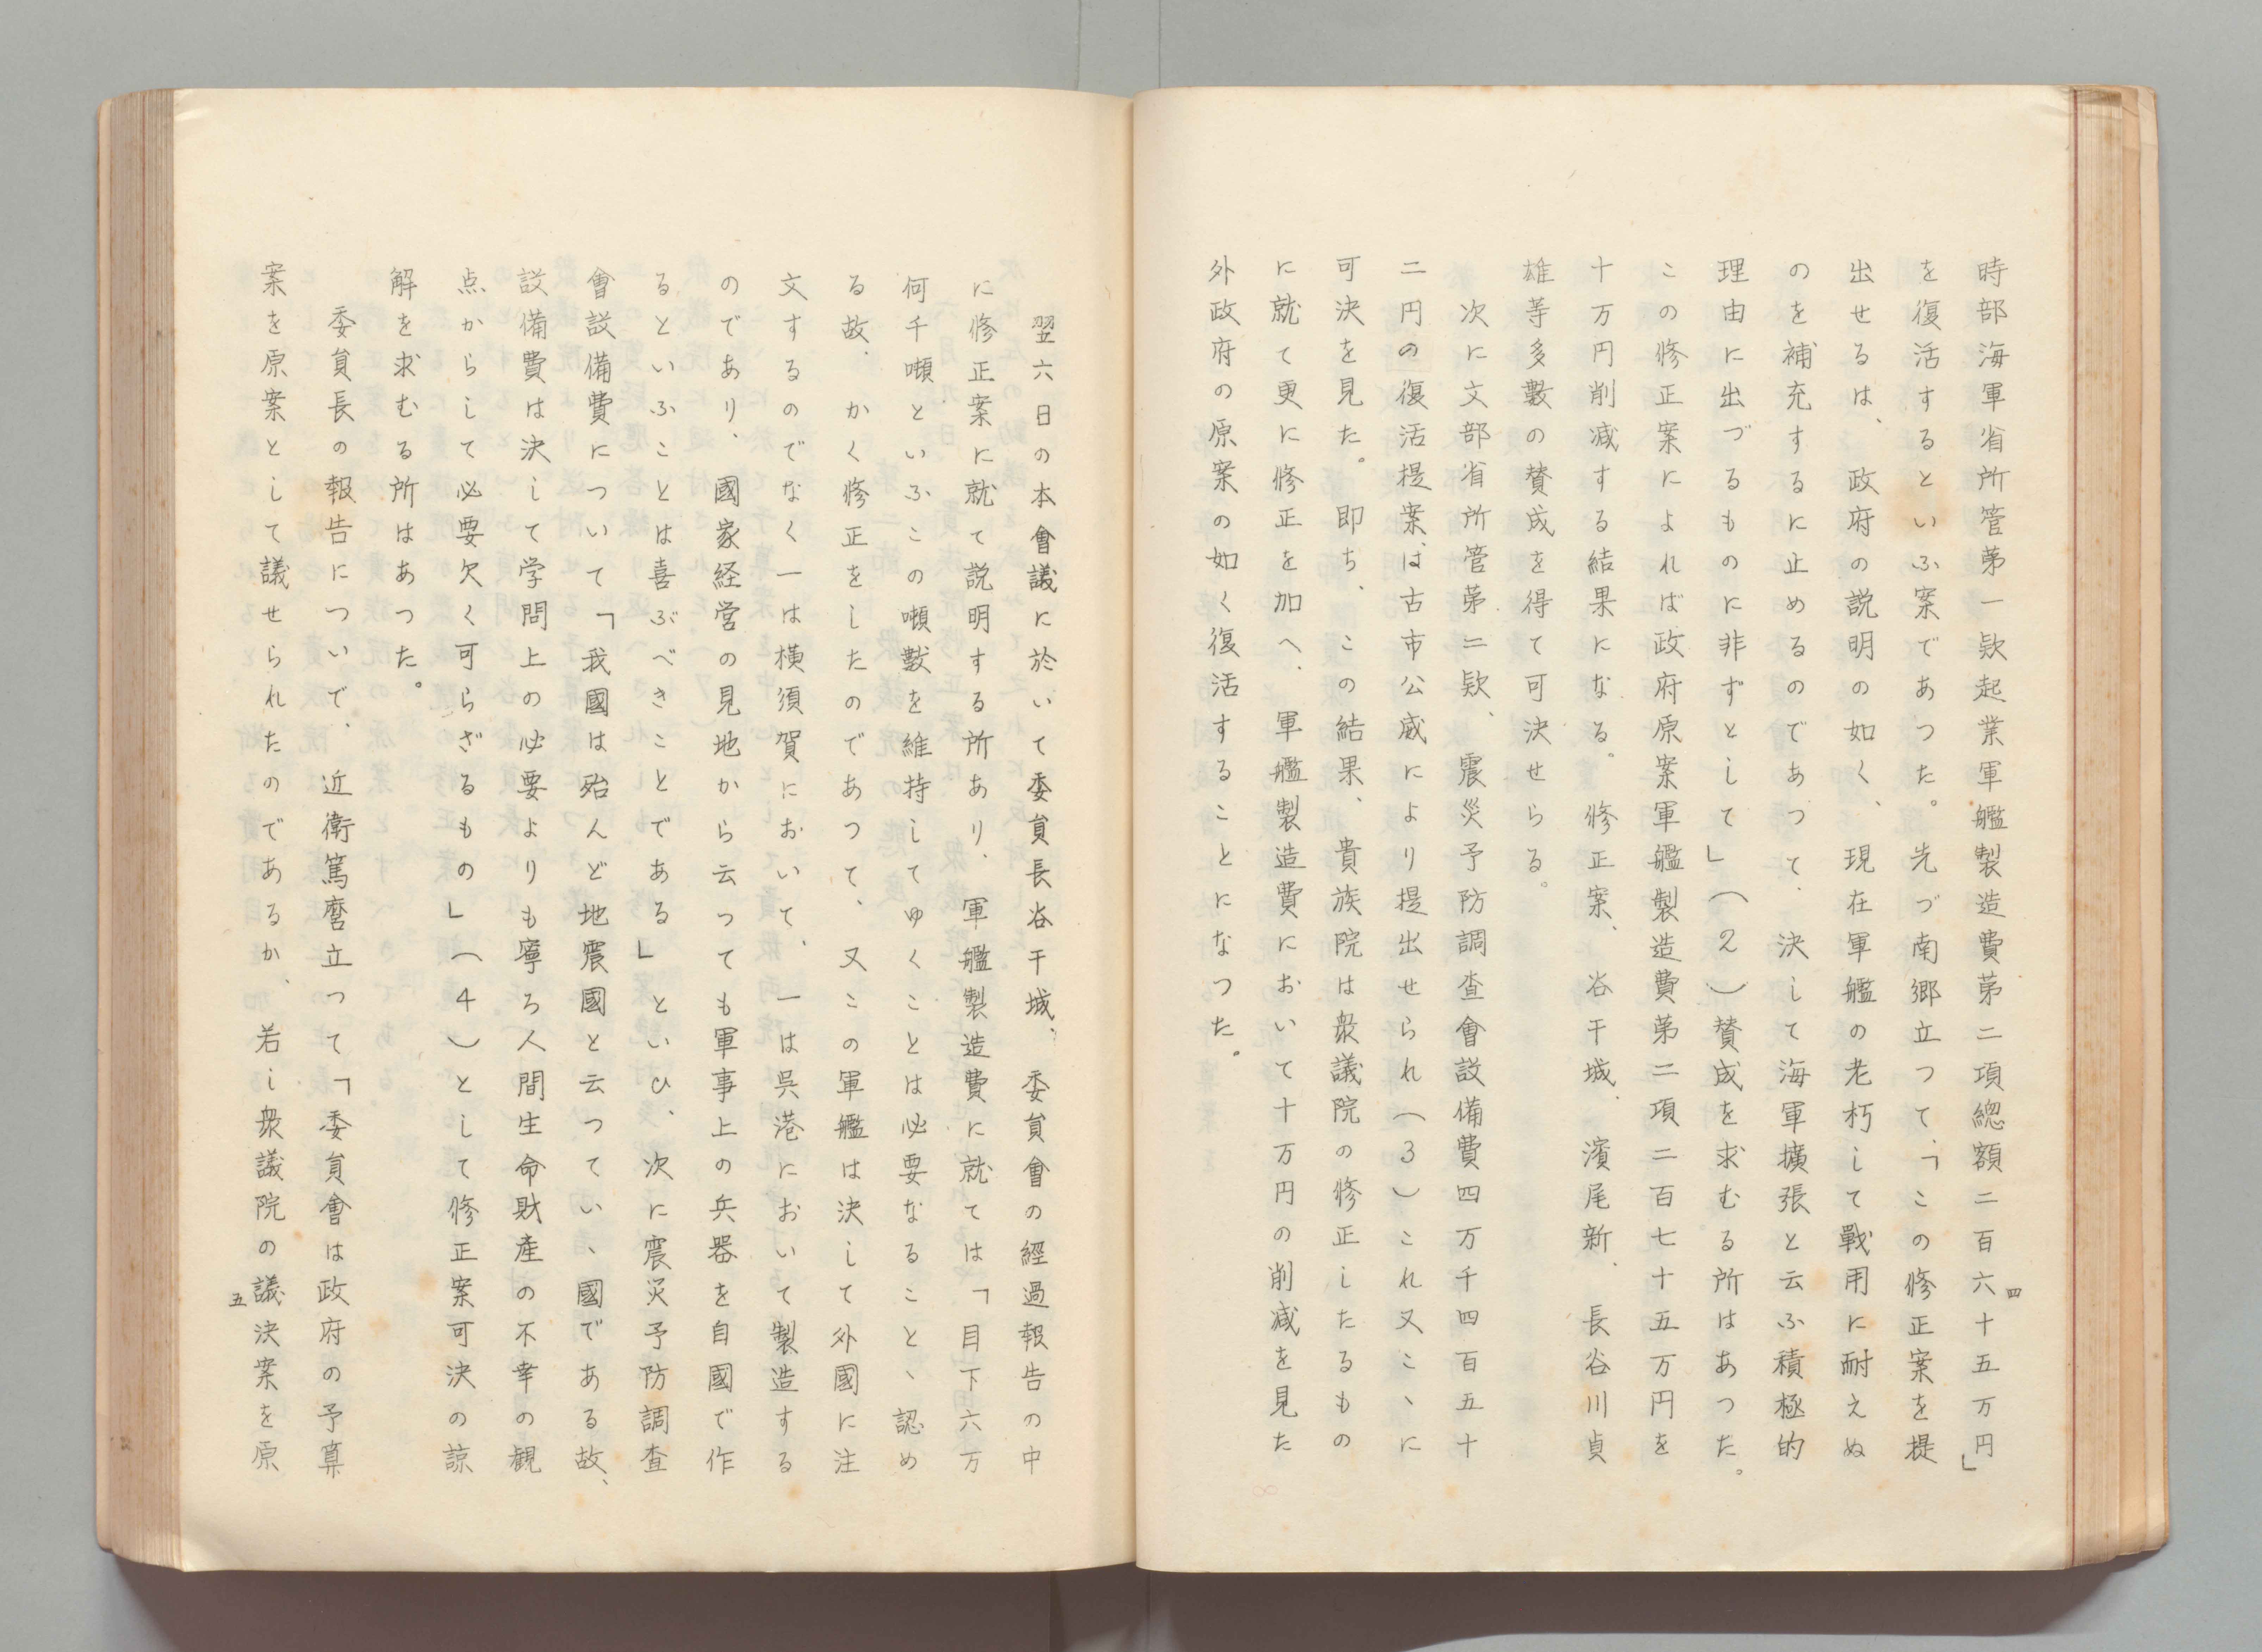 時部海軍省所管第一款起業軍艦製造費第二項總額二百六十五万円」
を復活するといふ案であつた。先づ南郷立つて、「この修正案を提
出せるは、政府の説明の如く、現在軍艦の老朽して戰用に耐えぬ
のを補充するに止めるのであつて、決して海軍擴張と云ふ積極的
理由に出づるものに非ずとして」（２）賛成を求むる所はあつた。
この修正案によれば政府原案軍艦製造費第二項二百七十五万円を
十万円削減する結果になる。修正案、谷干城、濱尾新、長谷川貞
雄等多數の賛成を得て可決せらる。
次に文部省所管第二款、震災予防調查會設備費四万千四百五十
二円の復活提案は古市公威により提出せられ（３）これ又こゝに
可決を見た。即ち、この結果、貴族院は衆議院の修正したるもの
に就て更に修正を加へ、軍艦製造費において十万円の削減を見た
外政府の原案の如く復活することになつた。
四
翌六日の本會議に於いて委員長谷干城、委員會の經過報告の中
に修正案に就て説明する所あり、軍艦製造費に就ては「目下六万
何千噸といふこの噸數を維持してゆくことは必要なること、認め
る故、かく修正をしたのであつて、又この軍艦は決して外國に注
文するのでなく一は横須賀において、一は呉港において製造する
のであり、國家経営の見地から云つても軍事上の兵器を自國で作
るといふことは喜ぶべきことである」といひ、次に震災予防調查
會設備費について「我國は殆んど地震國と云つてい、國である故、
設備費は決して学問上の必要よりも寧ろ人間生命財產の不幸の観
点からして必要欠く可らざるもの」（４）として修正案可決の諒
解を求むる所はあつた。
委員長の報告についで、近衛篤麿立って「委員會は政府の予算
案を原案として議せられたのであるか、若し衆議院の議決案を原
五